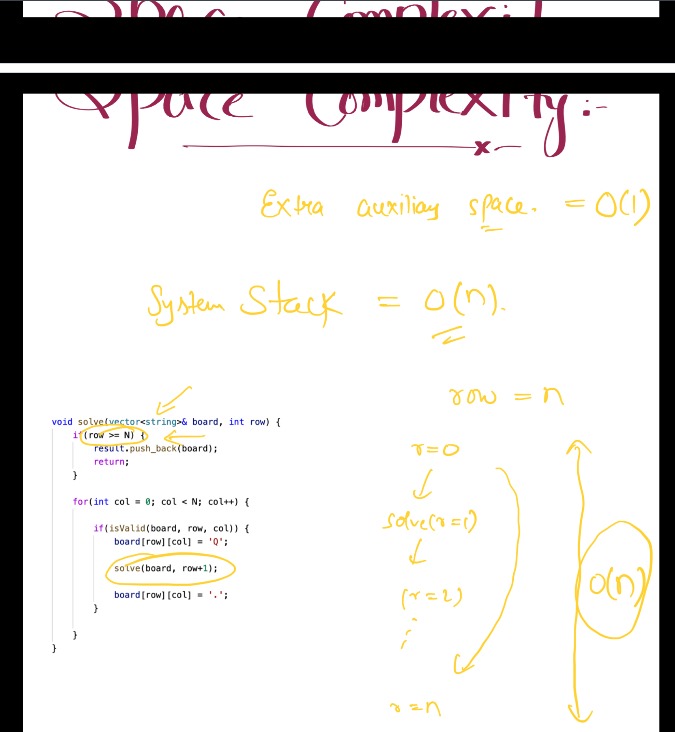 Space Complexity
Space Complexity:-
Extra auxiliary space. = O(1)
System Stack = O(n).
row = n
void solve(vector<string>& board, int row) {
if(row >= N) {
result.push_back(board);
return;
}
for(int col = 0; col < N; col++) {
if(isValid(board, row, col)) {
board[row][col] = 'Q';
solve(board, row+1);
board[row][col] = '.';
}
}
}
r=0
solve(r=1)
(r=2)
r=n
O(n)